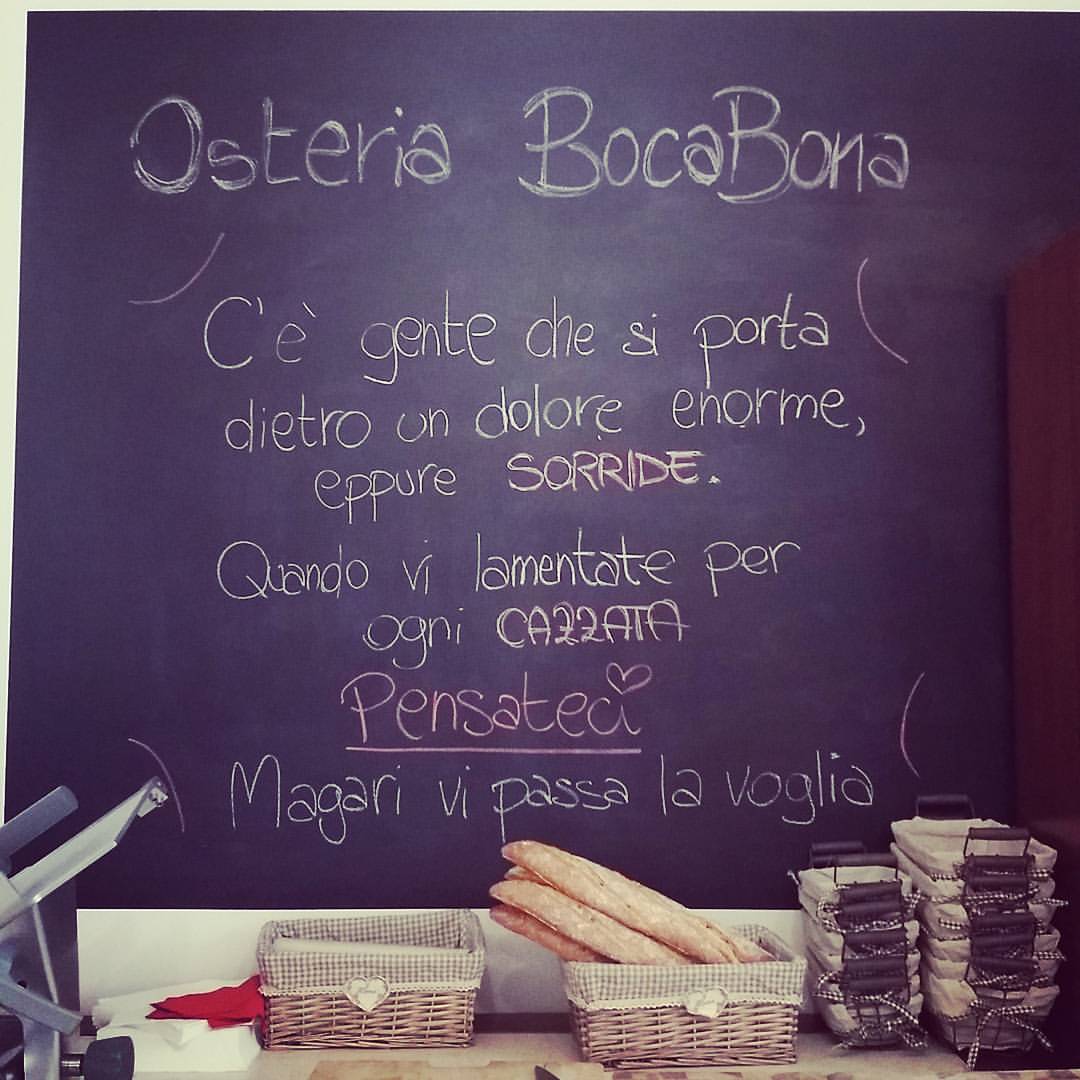 Osteria BocaBona
C'è gente che si porta
dietro un dolore enorme,
eppure SORRIDE.
Quando vi lamentate per
ogni CAZZATA
Pensateci
Magari vi passa la voglia